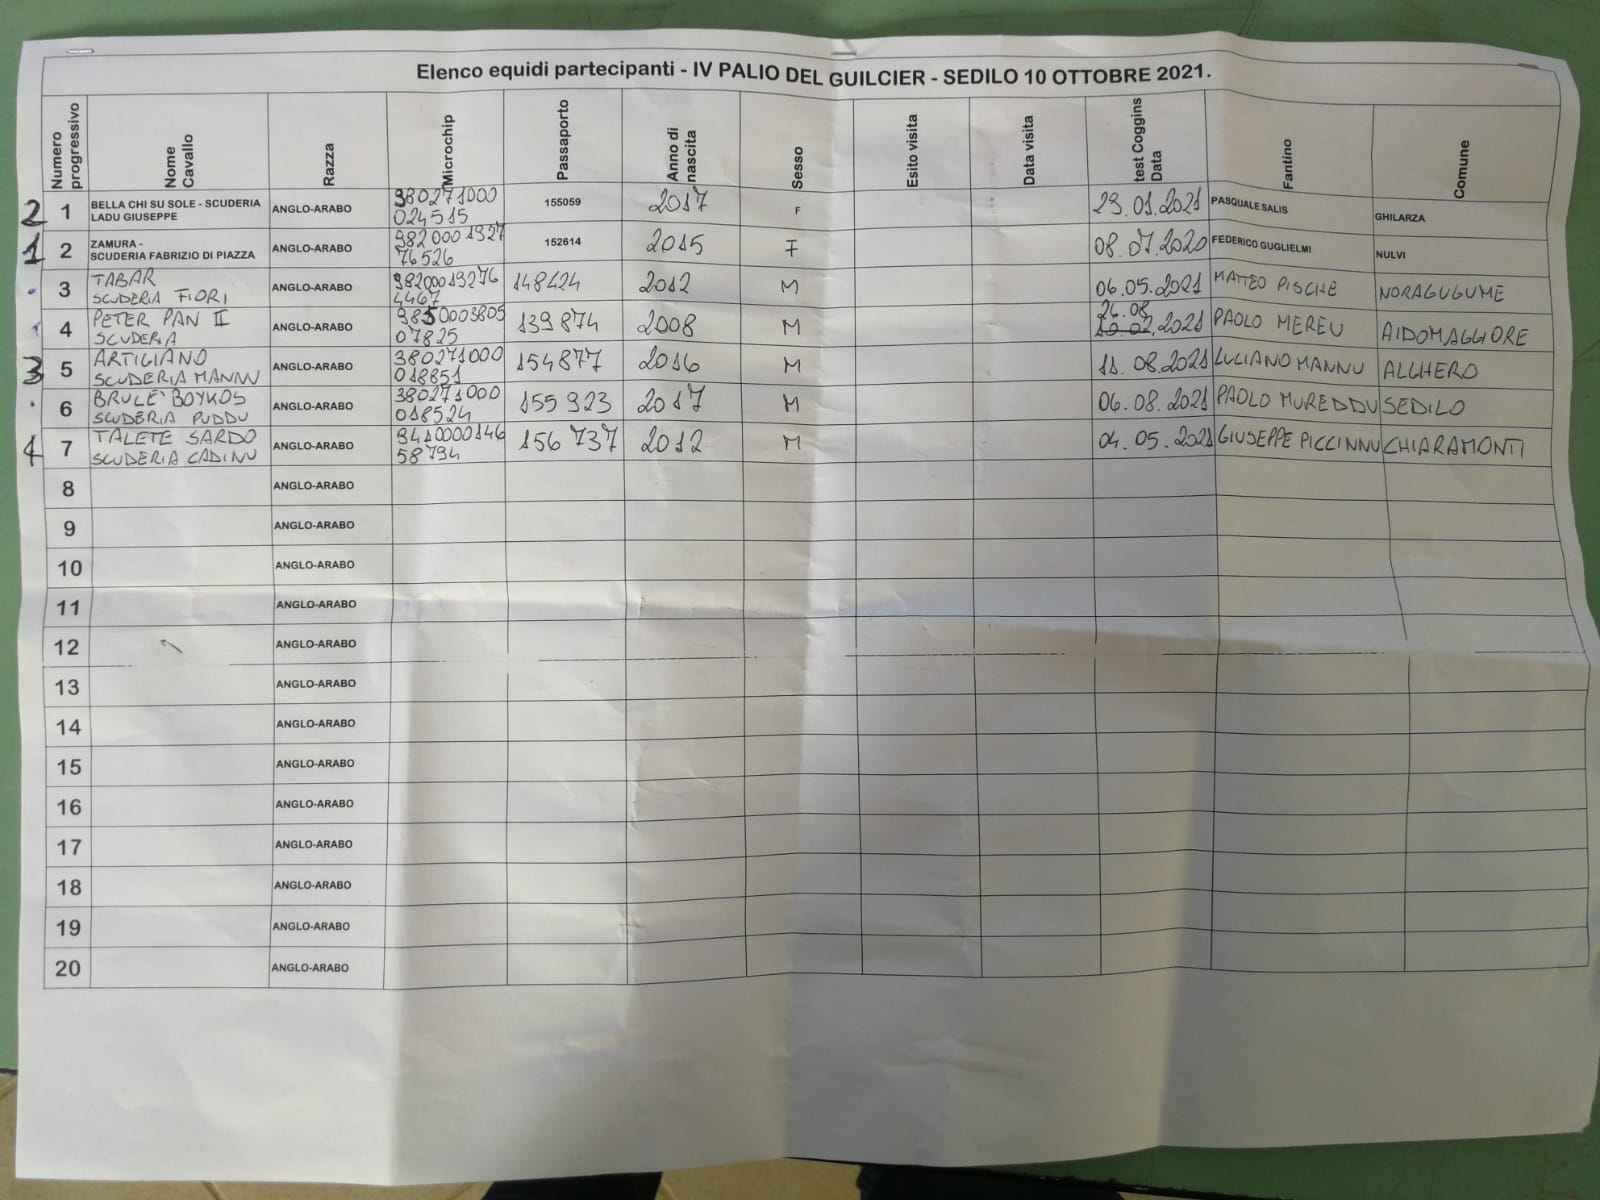 Elenco equidi partecipanti - IV PALIO DEL GUILCIER - SEDILO 10 OTTOBRE 2021.
Numero progressivo Nome Cavallo Razza Microchip Passaporto Anno di nascita Sesso Esito visita Data visita test Coggins Data Fantino Comune
2 1 BELLA CHI SU SOLE - SCUDERIA LADU GIUSEPPE ANGLO-ARABO 380271000 024515 155059 2017 F 29.01.2021 PASQUALE SALIS GHILARZA
1 2 ZAMURA - SCUDERIA FABRIZIO DI PIAZZA ANGLO-ARABO 982000 1927 76526 152614 2015 F 08.07.2020 FEDERICO GUGLIELMI NULVI
3 TABAR SCUDERIA FIORI ANGLO-ARABO 982000 19276 4467 148424 2012 M 06.05.2021 MATTEO PISCHE NORAGUGUME
4 PETER PAN II SCUDERIA ANGLO-ARABO 9850003805 07825 139874 2008 M 26.08 .2021 PAOLO MEREU AIDOMAGGIORE
3 5 ARTIGIANO SCUDERIA MANNU ANGLO-ARABO 380271000 018851 154877 2016 M 11.08.2021 LULIANO MANNU ALGHERO
6 BRULE' BOYKOS SCUDERIA PUDDU ANGLO-ARABO 380271000 018524 155 923 2017 M 06.08.2021 PAOLO MUREDDU SEDILO
4 7 TALETE SARDO SCUDERIA CADINU ANGLO-ARABO 9410000146 58794 156 737 2012 M 04.05.2021 GIUSEPPE PICCINNU CHIARAMONTI
8 ANGLO-ARABO
9 ANGLO-ARABO
10 ANGLO-ARABO
11 ANGLO-ARABO
12 ANGLO-ARABO
13 ANGLO-ARABO
14 ANGLO-ARABO
15 ANGLO-ARABO
16 ANGLO-ARABO
17 ANGLO-ARABO
18 ANGLO-ARABO
19 ANGLO-ARABO
20 ANGLO-ARABO